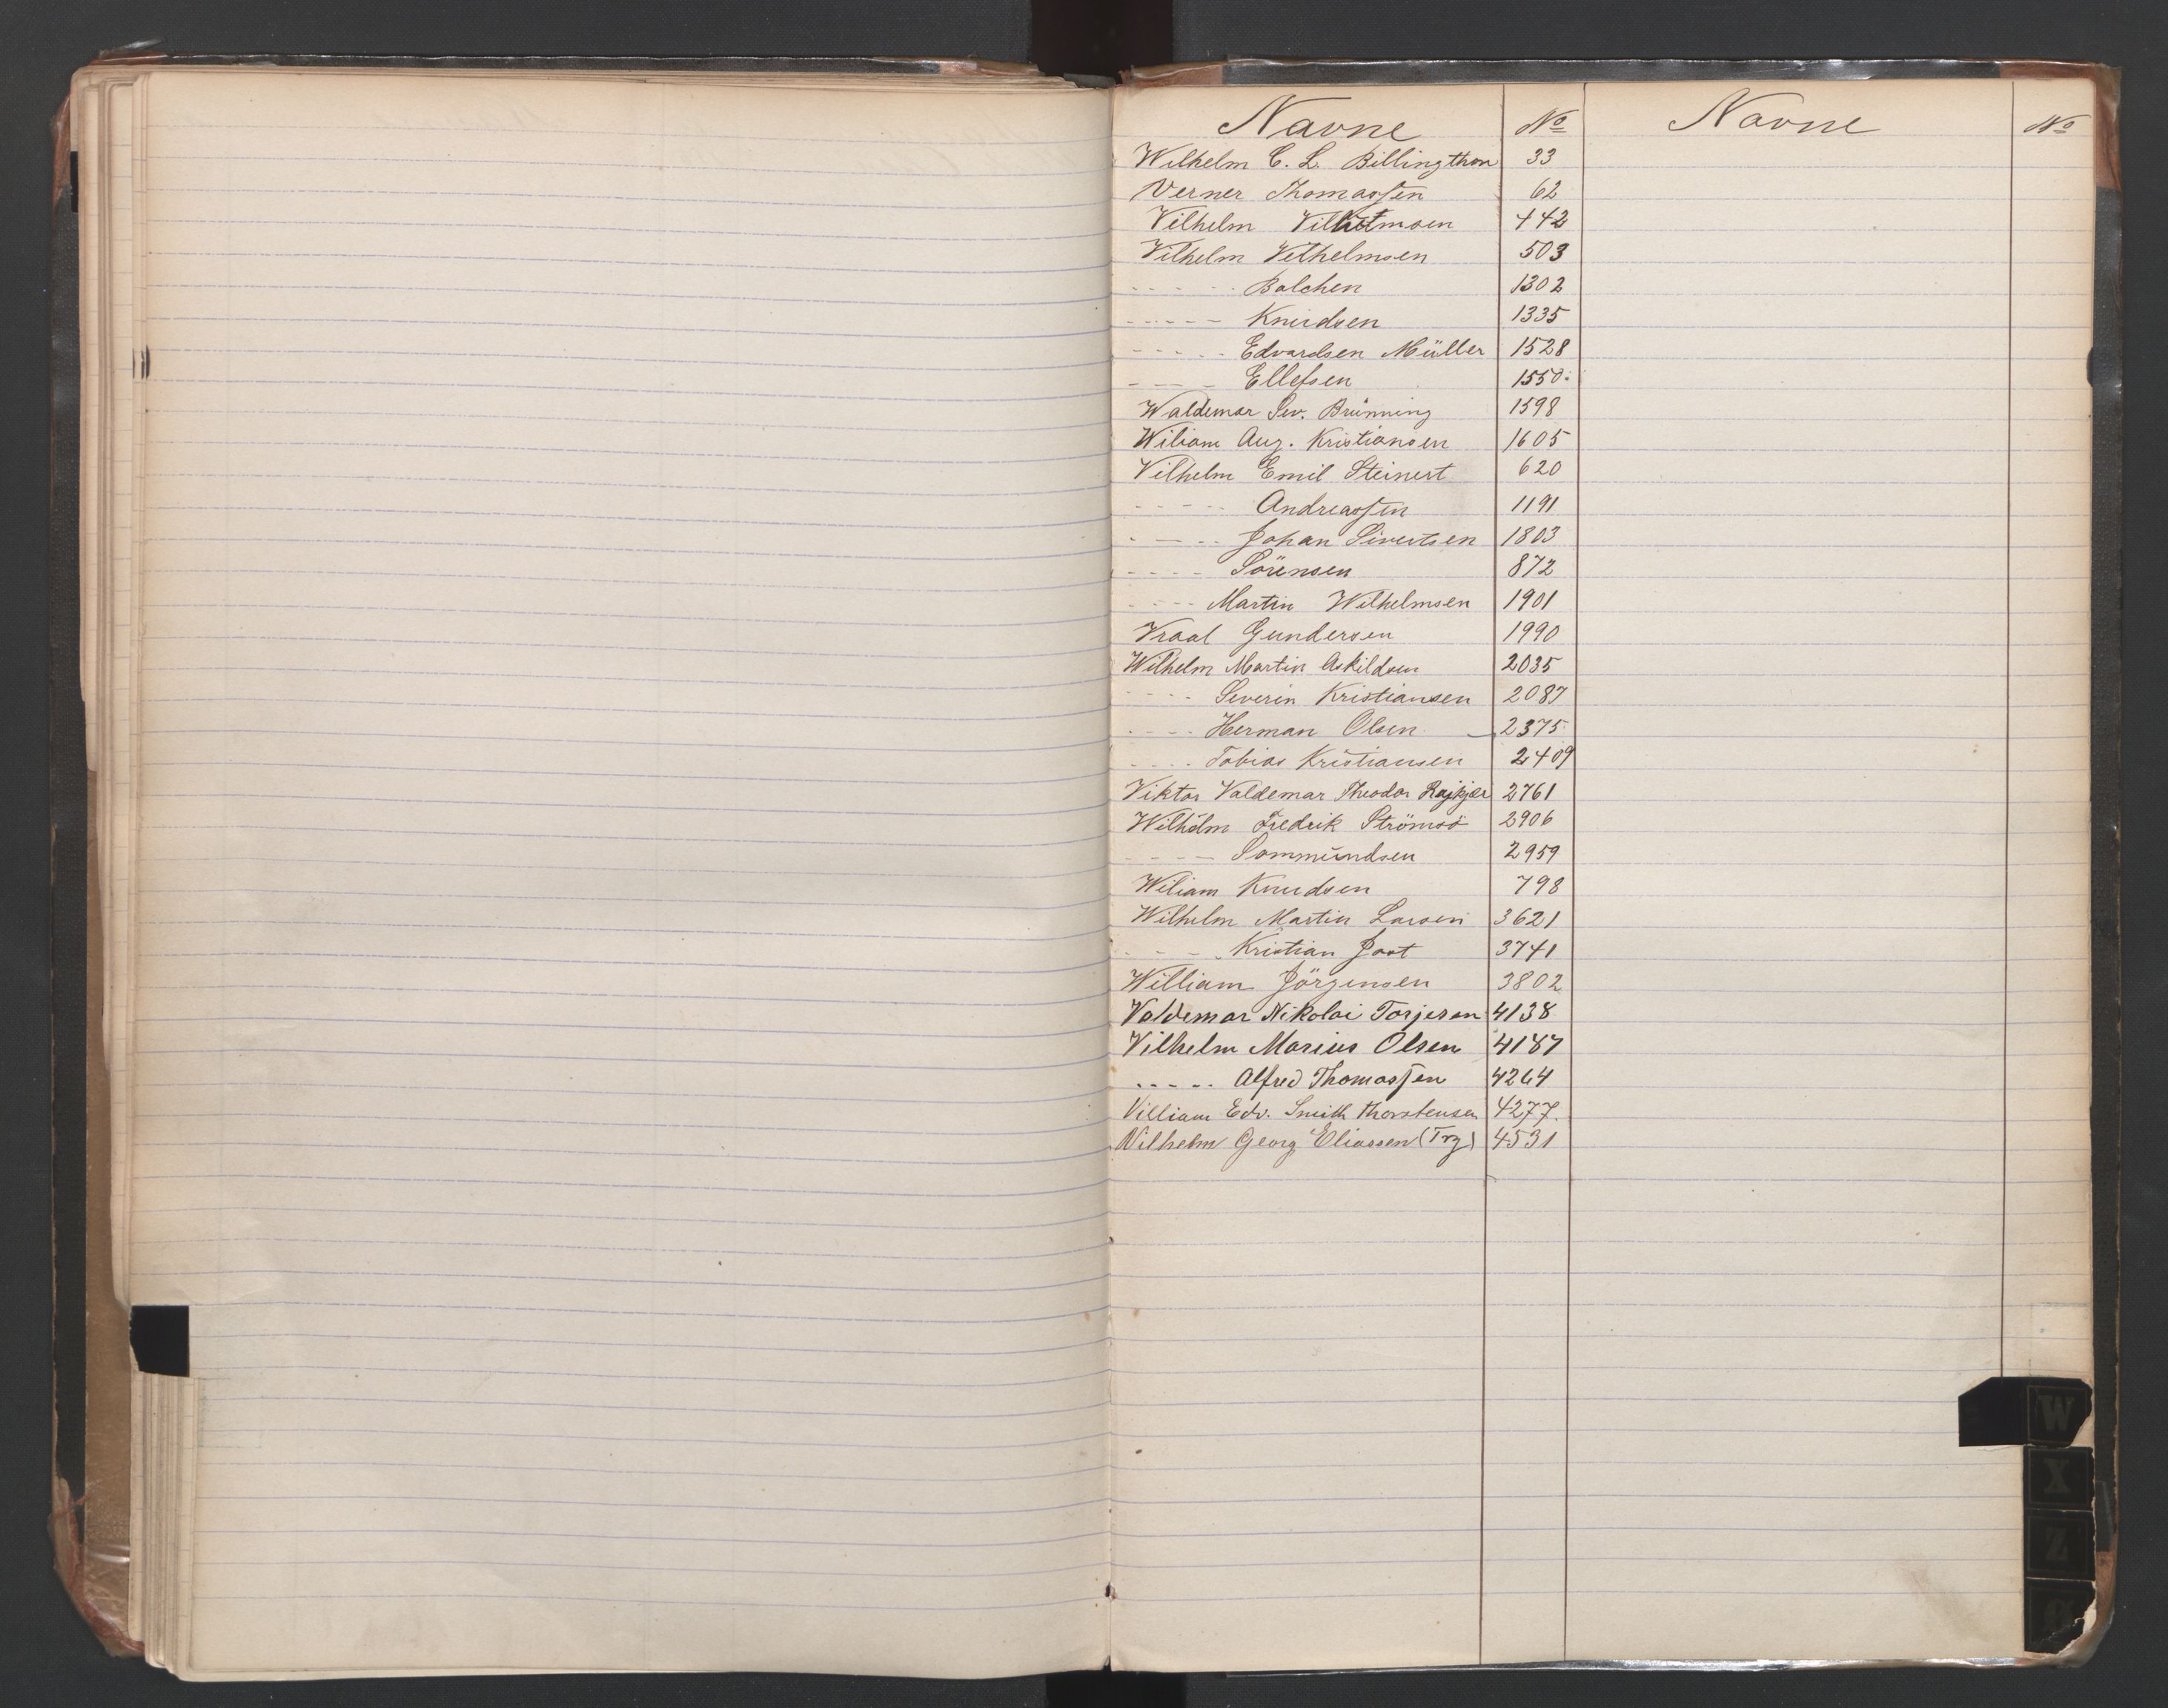 Navne No Navne No
Wilhelm C. L. Billingthon 33
Verner Thomassen 62
Vilhelm Vilhelmsen 442
Vilhelm Vilhelmsen 503
- - - - - Balchen 1302
- - - - - Knudsen 1335
- - - - - Edvardsen Müller 1528
- - - - Ellefsen 1550.
Waldemar Sev. Brünning 1598
Wiliam Aug. Kristiansen 1605
Vilhelm Emil Steinert 620
- - - - - Andreassen 1191
- - - - Johan Sivertsen 1803
- - - - Sörensen 872
- - - - Martin Wilhelmsen 1901
Vraal Gundersen 1990
Wilhelm Martin Askildsen 2035
- - - - Severin Kristiansen 2087
- - - - Herman Olsen 2375
- - - - Tobias Kristiansen 2409
Viktor Valdemar Theodor 2761
Wilhelm Fredrik Strömsö 2906
- - - - Sommundsen 2959
Wiliam Knudsen 798
Wilhelm Martin Larsen 3621
- - - - Kristian Joot 3741
William Jörgensen 3802
Valdemar Nikolai Torjesen 4138
Vilhelm Marius Olsen 4187
- - - - - Alfred Thomassen 4264
Villiam Edv. Smith Thorstensen 4277.
Wilhelm Georg Eliassen (Trg) 4531
W
X
Z